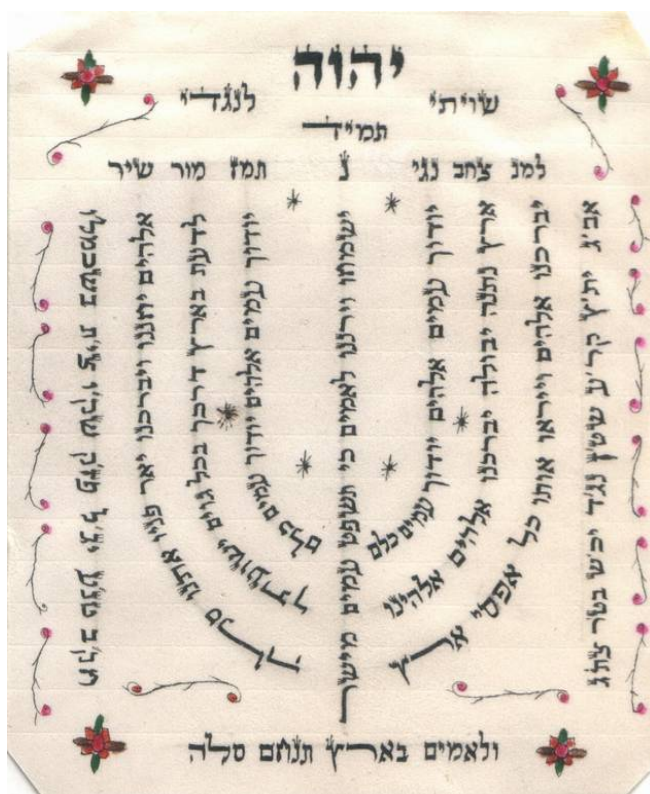 יהוה
שויתי לנגדי
תמיד
למנ צחב נגי נ תמז מור שיר
אב״ג ית״ץ קר״ע שט״ן נג״ד יכ״ש בט״ר צת״ג
יברכנו אלהים וייראו אותו כל אפסי ארץ
ארץ נתנה יבולה יברכנו אלהים אלהינו
יודוך עמים אלהים יודוך עמים כלם
ישמחו וירננו לאמים כי תשפט עמים מישר
יודוך עמים אלהים יודוך עמים כלם
לדעת בארץ דרכך בכל גוים ישועתך
אלהים יחננו ויברכנו יאר פניו אתנו סלה
חק״ב טנ״ע יג״ל פז״ק שק״ו צי״ת בשכמל״ו
ולאמים בארץ תנחם סלה